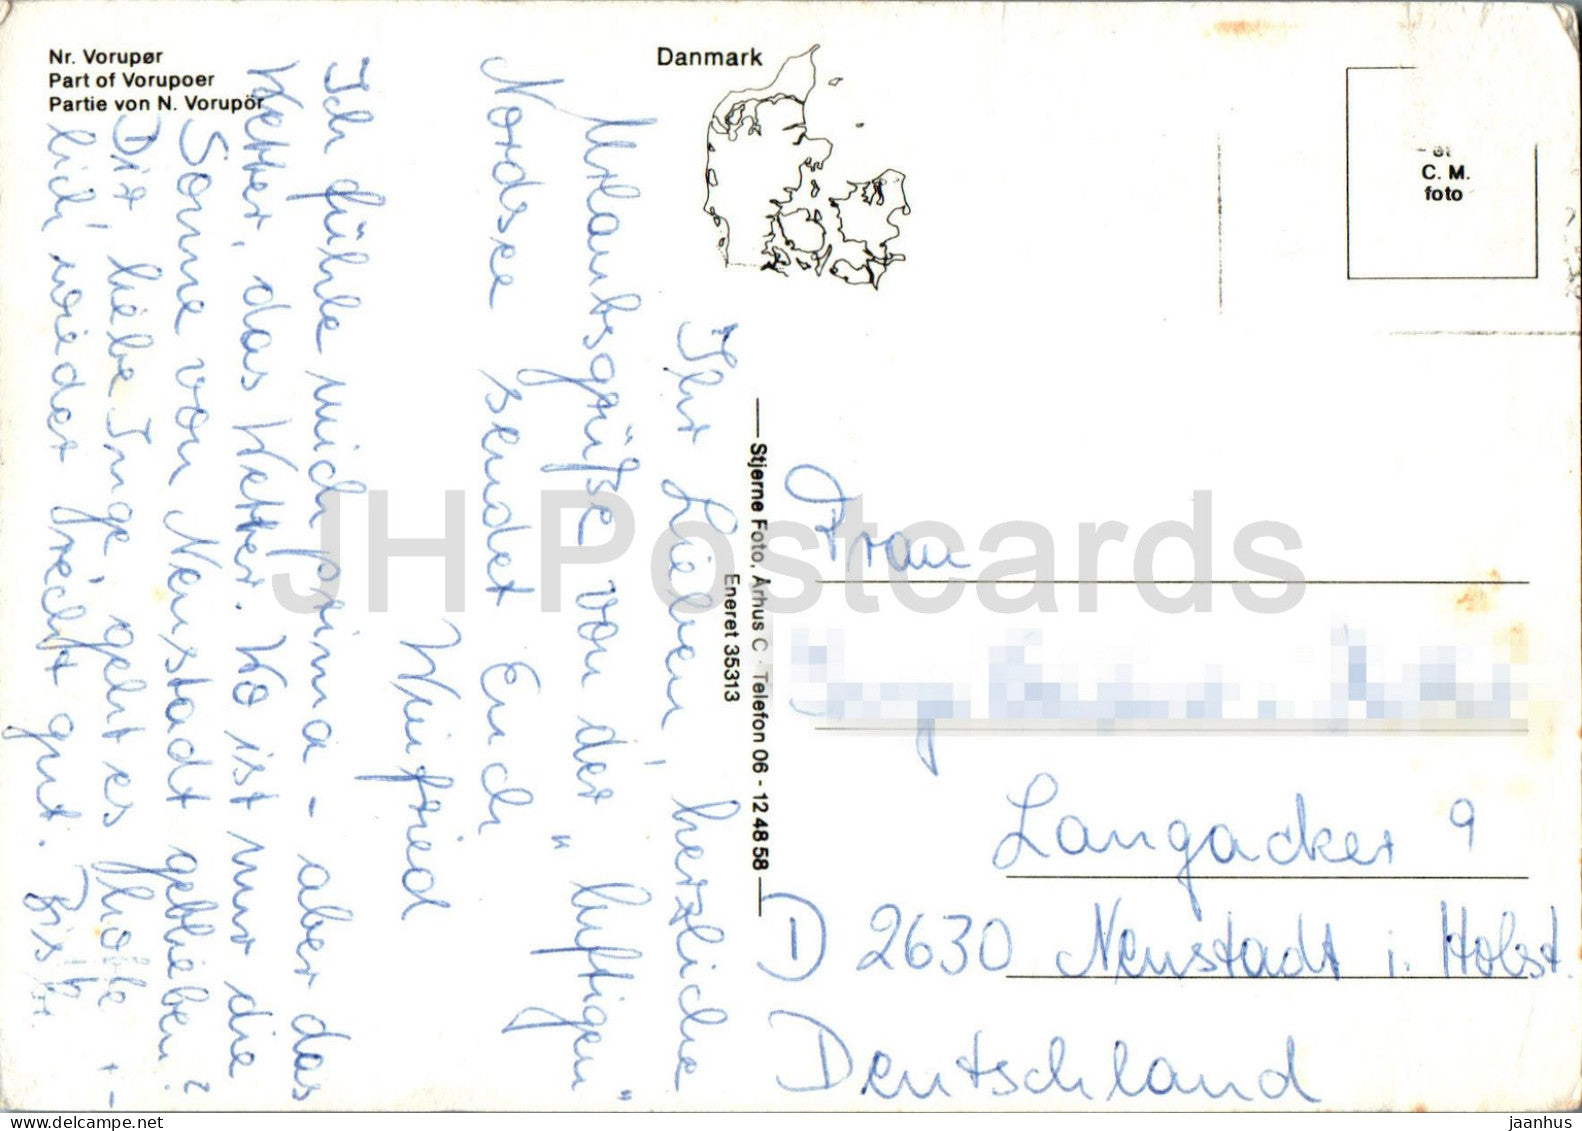 Nr. Vorupør
Part of Vorupoer
Partie von N. Vorupör
Danmark
C. M.
foto
Ihr Lieben, herzliche
Urlaubsgrüße von der "luftigen"
Nordsee sendet Euch
Winfried
Ich fühle mich prima - aber das
Wetter, das Wetter. Wo ist nur die
Sonne von Neustadt geblieben?
Dir liebe Inge, geht es
lich wieder recht gut. Bis
Stjerne Foto, Århus C · Telefon 06 - 12 48 58
Eneret 35313
Frau
Langacker 9
D 2630 Neustadt i. Holst.
Deutschland
JH Postcards
jaanhus